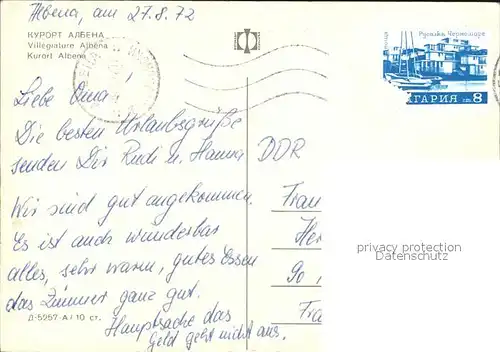 Albena, am 27.8.72
КУРОРТ АЛБЕНА
Villégiature Albéna
Kurort Albena
Liebe Oma!
Die besten Urlaubsgrüße
senden Dir Rudi u. Hanna
Wir sind gut angekommen.
Es ist auch wunderbar
alles, sehr warm, gutes Essen
das Zimmer ganz gut.
Hauptsache das
Geld geht nicht aus.
Д-5257-А/10 ст.
Русалка Черноморе
ГАРИЯ 8
DDR
Frau
He
90
Fra
privacy protection
Datenschutz